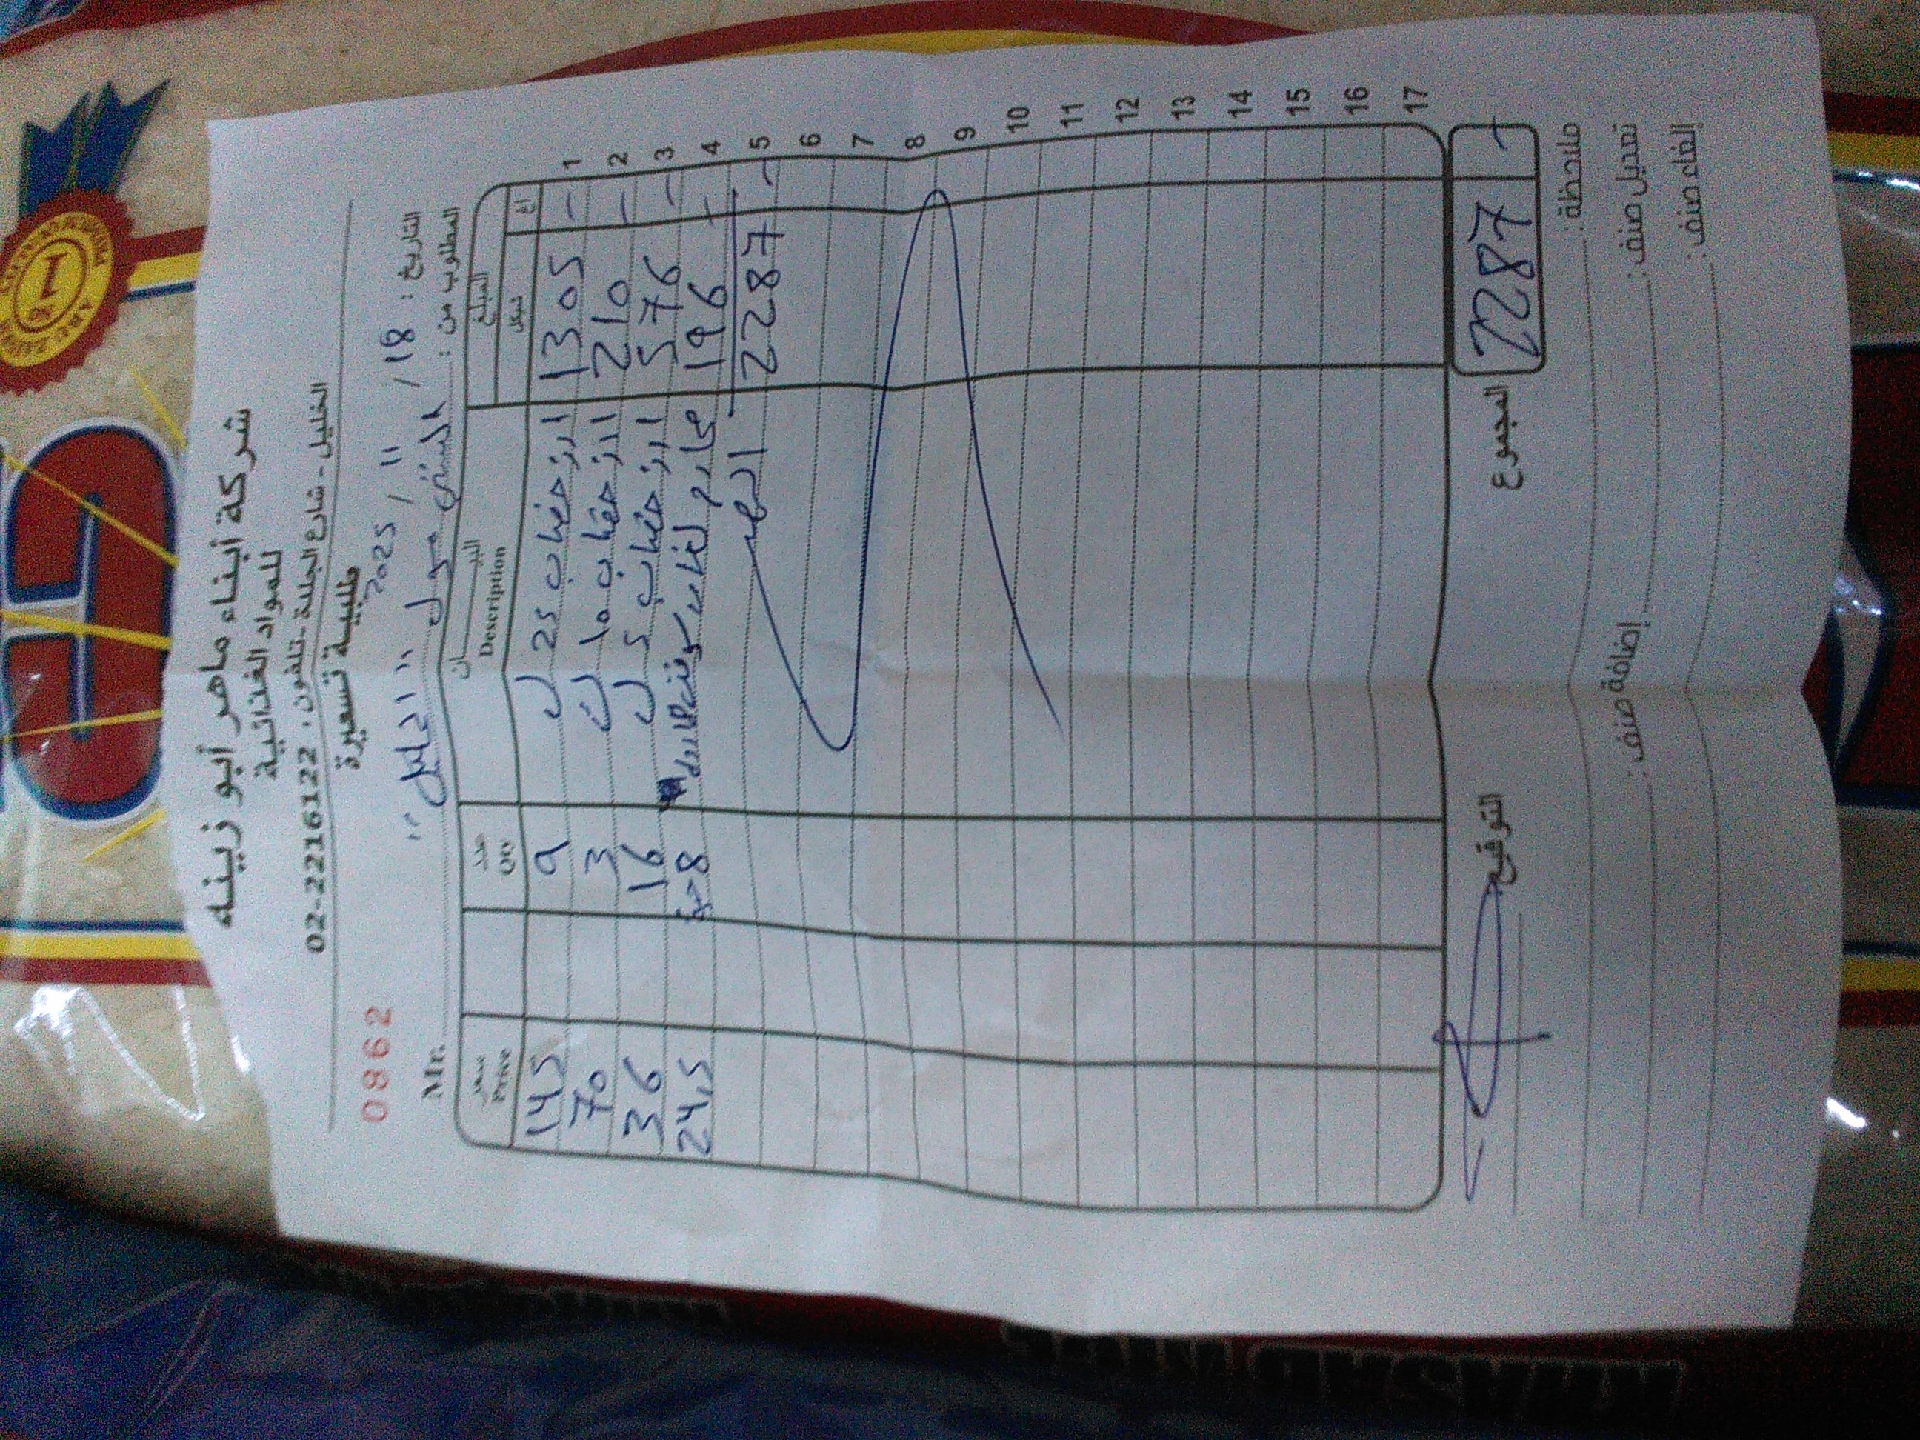 شركة أبناء ماهر أبو زينه
للمواد الغذائية
الخليل - شارع الجلدة - تلفون: 02-2216122
طلبية تسعيرة
0862
التاريخ: 18 / 11 / 2025
المطلوب من: مول " الخليل " Mr.
المبلغ البيــــــــان عدد سعر
شيكل أغ Description Qty Price
1 1305 - ارز عقاب 25 ك 9 145
2 210 - ارز عقاب 10 ك 3 70
3 576 - ارز عقاب 5 ك 16 36
4 196 - 8 24,5
5 2287 -
6
7
8
9
10
11
12
13
14
15
16
17
2287 - المجموع التوقيع
ملاحظة:
تعديل صنف: إضافة صنف:
إلغاء صنف: